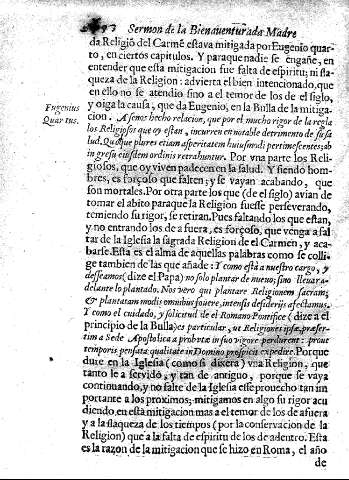 Sermon de la Bienaventurada Madre
da Religiõ del Carmẽ estava mitigada por Eugenio quar-
to, en ciertos capitulos. Y paraque nadie se engañe, en
entender que esta mitigacion fue falta de espiritu; ni fla-
queza de la Religion: advierta el bien intencionado, que
en ello no se atendio sino a el temor de los de el siglo,
y oiga la causa, que da Eugenio, en la Bulla de mitiga-
Eugenius
Quartus.
cion. A semos hecho relacion, que por el mucho rigor de la regla
los Religiosos que oy estan, incurren en notable detrimento de su sa
lud. Quòque plures etiam asperitatem huiusmodi pertimescentes; ab
ingresu eiusdem ordinis retrahuntur. Por vna parte los Reli-
giosos, que oy viven padecen en la salud. Y siendo hom-
bres, es forçoso que falten; y se vayan acabando, que
son mortales. Por otra parte los que (de el siglo) avian de
tomar el abito paraque la Religion fuesse perseverando,
temiendo su rigor, se retiran. Pues faltando los que estan,
y no entrando los de a fuera, es forçoso, que venga a fal
tar de la Iglesia la sagrada Religion de el Carmen, y aca-
barse. Esta es el alma de aquellas palabras como se collige
tambien de las que añade: Y como está a nuestro cargo, y
desseamos (dize el Papa) no solo plantar de nuevo; sino llevar a-
delante lo plantado. Nos vero qui plantare Religionem sacram;
& plantatam modis omnibus fovere, intensis desiderijs afectamus.
Y como el cuidado, y solicitud de el Romano Pontifice (dize a el
principio de la Bulla) es particular, ut Religiones ipsæ, præser-
tim a Sede Apostolica a probatæ in suo vigore perdurent: prout
temporis pensata qualitate in Domino prospicit expedire. Porque
dure en la Iglesia (como si dixera) vna Religion, que
tanto le a servido, y tan de antiguo, porque se vaya
continuando, y no falte de la Iglesia esse provecho tan im
portante a los proximos; mitigamos en algo su rigor acu
diendo en esta mitigacion mas a el temor de los de afuera
y a la flaqueza de los tiempos (por la conservacion de la
Religion) que a la falta de espiritu de los de adentro. Esta
es la razon de la mitigacion que se hizo en Roma, el año
de